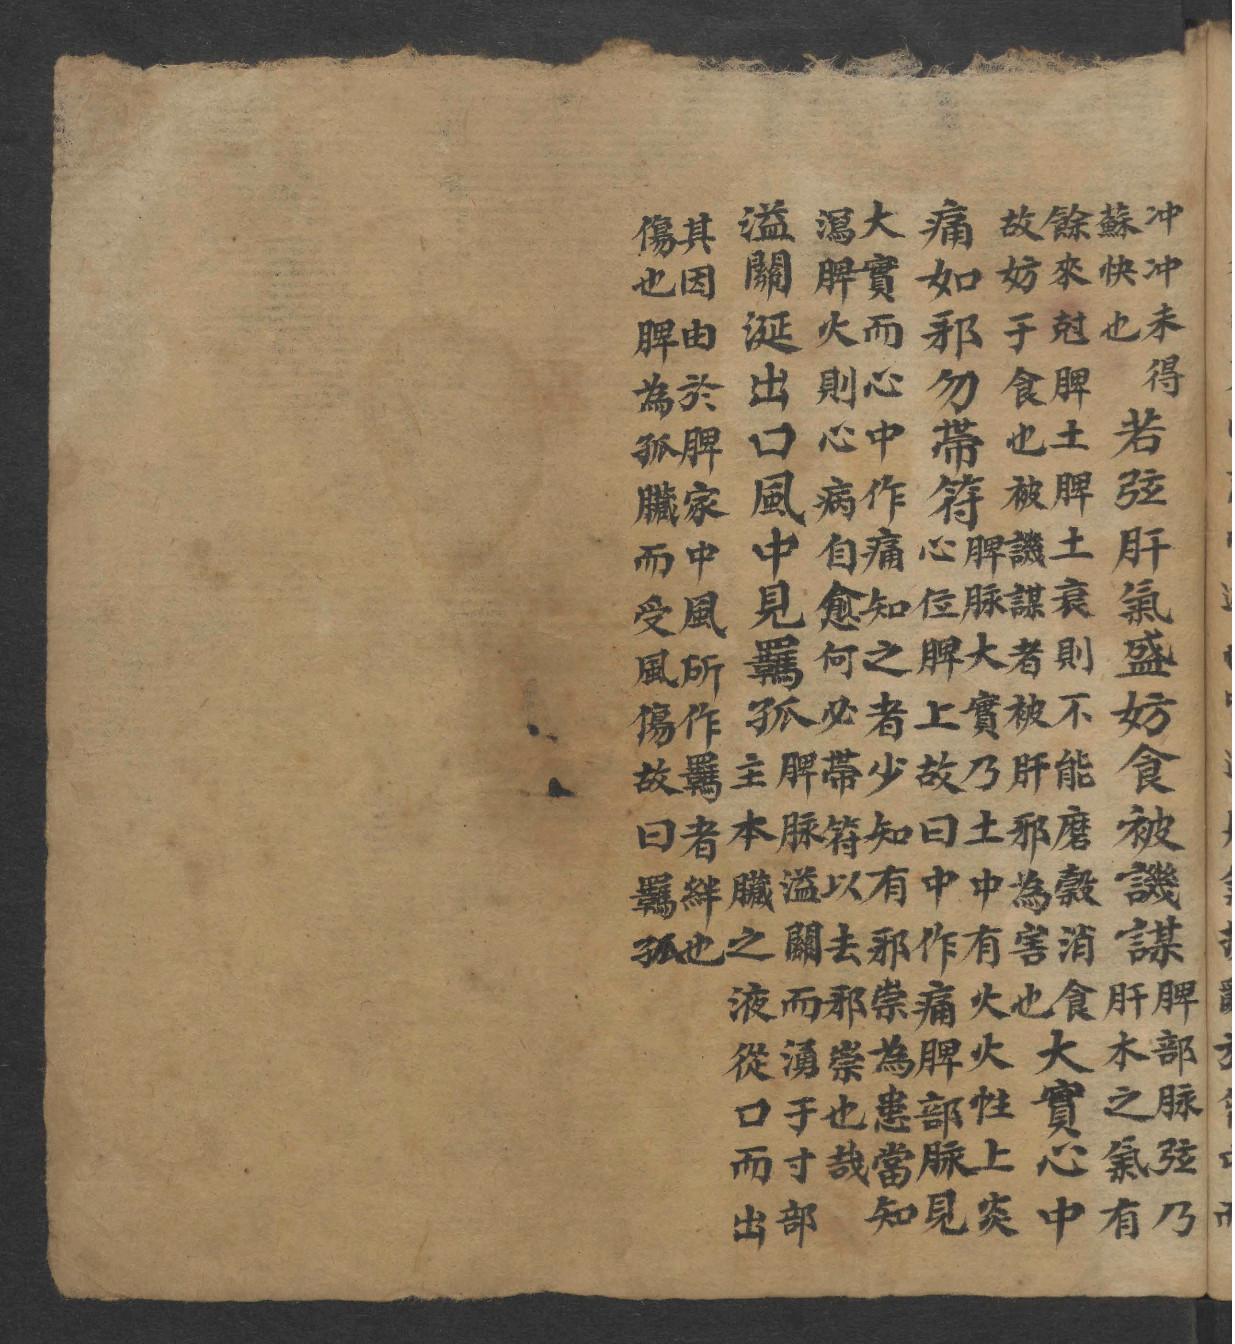 冲冲未得
蘇快也
若弦肝氣盛妨食被譏謀
脾部脉弦乃
肝木之氣有
餘來尅脾土脾土衰則不能磨穀消食
故妨于食也被譏謀者被肝邪為害也
大實心中
痛如邪勿帶符
脾脉大實乃土中有火火性上炎
心位脾上故曰中作痛脾部脉見
大實而心中作痛知之者少知有邪崇為患當知
瀉脾火則心病自愈何必帶符以去邪崇也哉
溢關涎出口風中見羈孤
脾脉溢關而湧于寸部
主本臟之液從口而出
其因由於脾家中風所作羈者絆也
傷也脾為孤臟而受風傷故曰羈孤